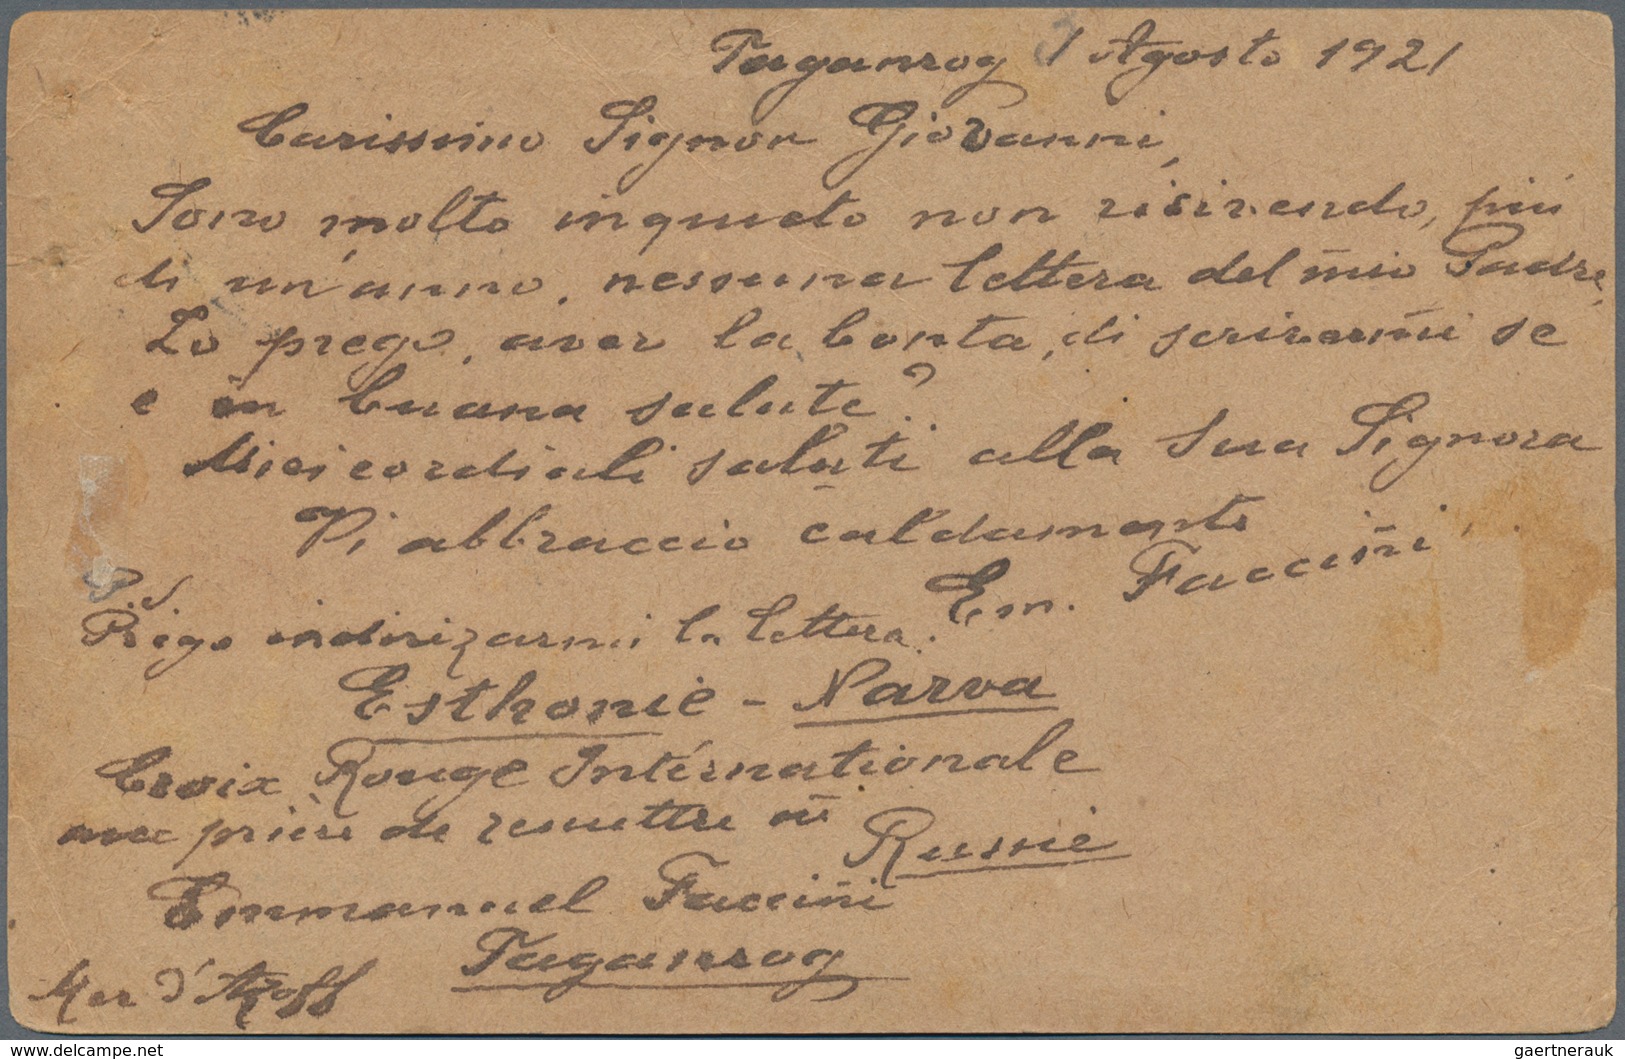 Taganrog 1 Agosto 1921
Carissimo Signor Giovanni,
Sono molto inquieto non ricivendo, più
di un'anno, nessuna lettera del mio Padre,
Lo prego, aver la bonta, di scrivermi se
e in buona salute?
Miei cordiali saluti alla Sua Signora
Vi abbraccio caldamente
Em. Faccini
P.S.
Prego indirizarmi la lettera:
Esthonie - Narva
Croix Rouge Internationale
avec prière de remettre en
Russie
Emmanuel Faccini
Taganrog
Mer d'Azoff
www.delcampe.net
gaertnerauk